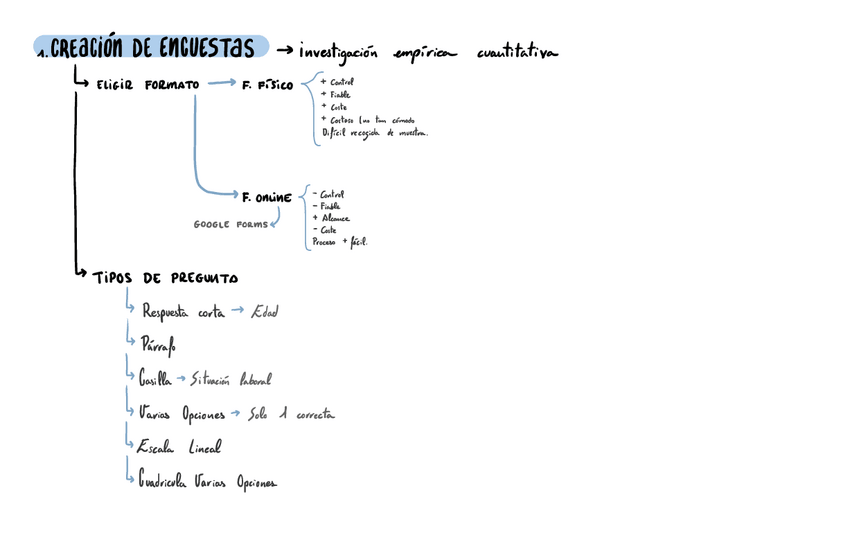 1. CREACIÓN DE ENCUESTAS → investigación empírica cuantitativa
ELIGIR FORMATO → F. FÍSICO
+ Control
+ Fiable
+ Coste
+ Costoso (no tan cómodo
Difícil recogida de muestra.
F. ONLINE
- Control
- Fiable
+ Alcance
- Coste
Proceso + fácil.
GOOGLE FORMS
TIPOS DE PREGUNTA
Respuesta corta → Edad
Párrafo
Casilla → Situación laboral
Varias Opciones → Solo 1 correcta
Escala Lineal
Cuadricula Varias Opciones